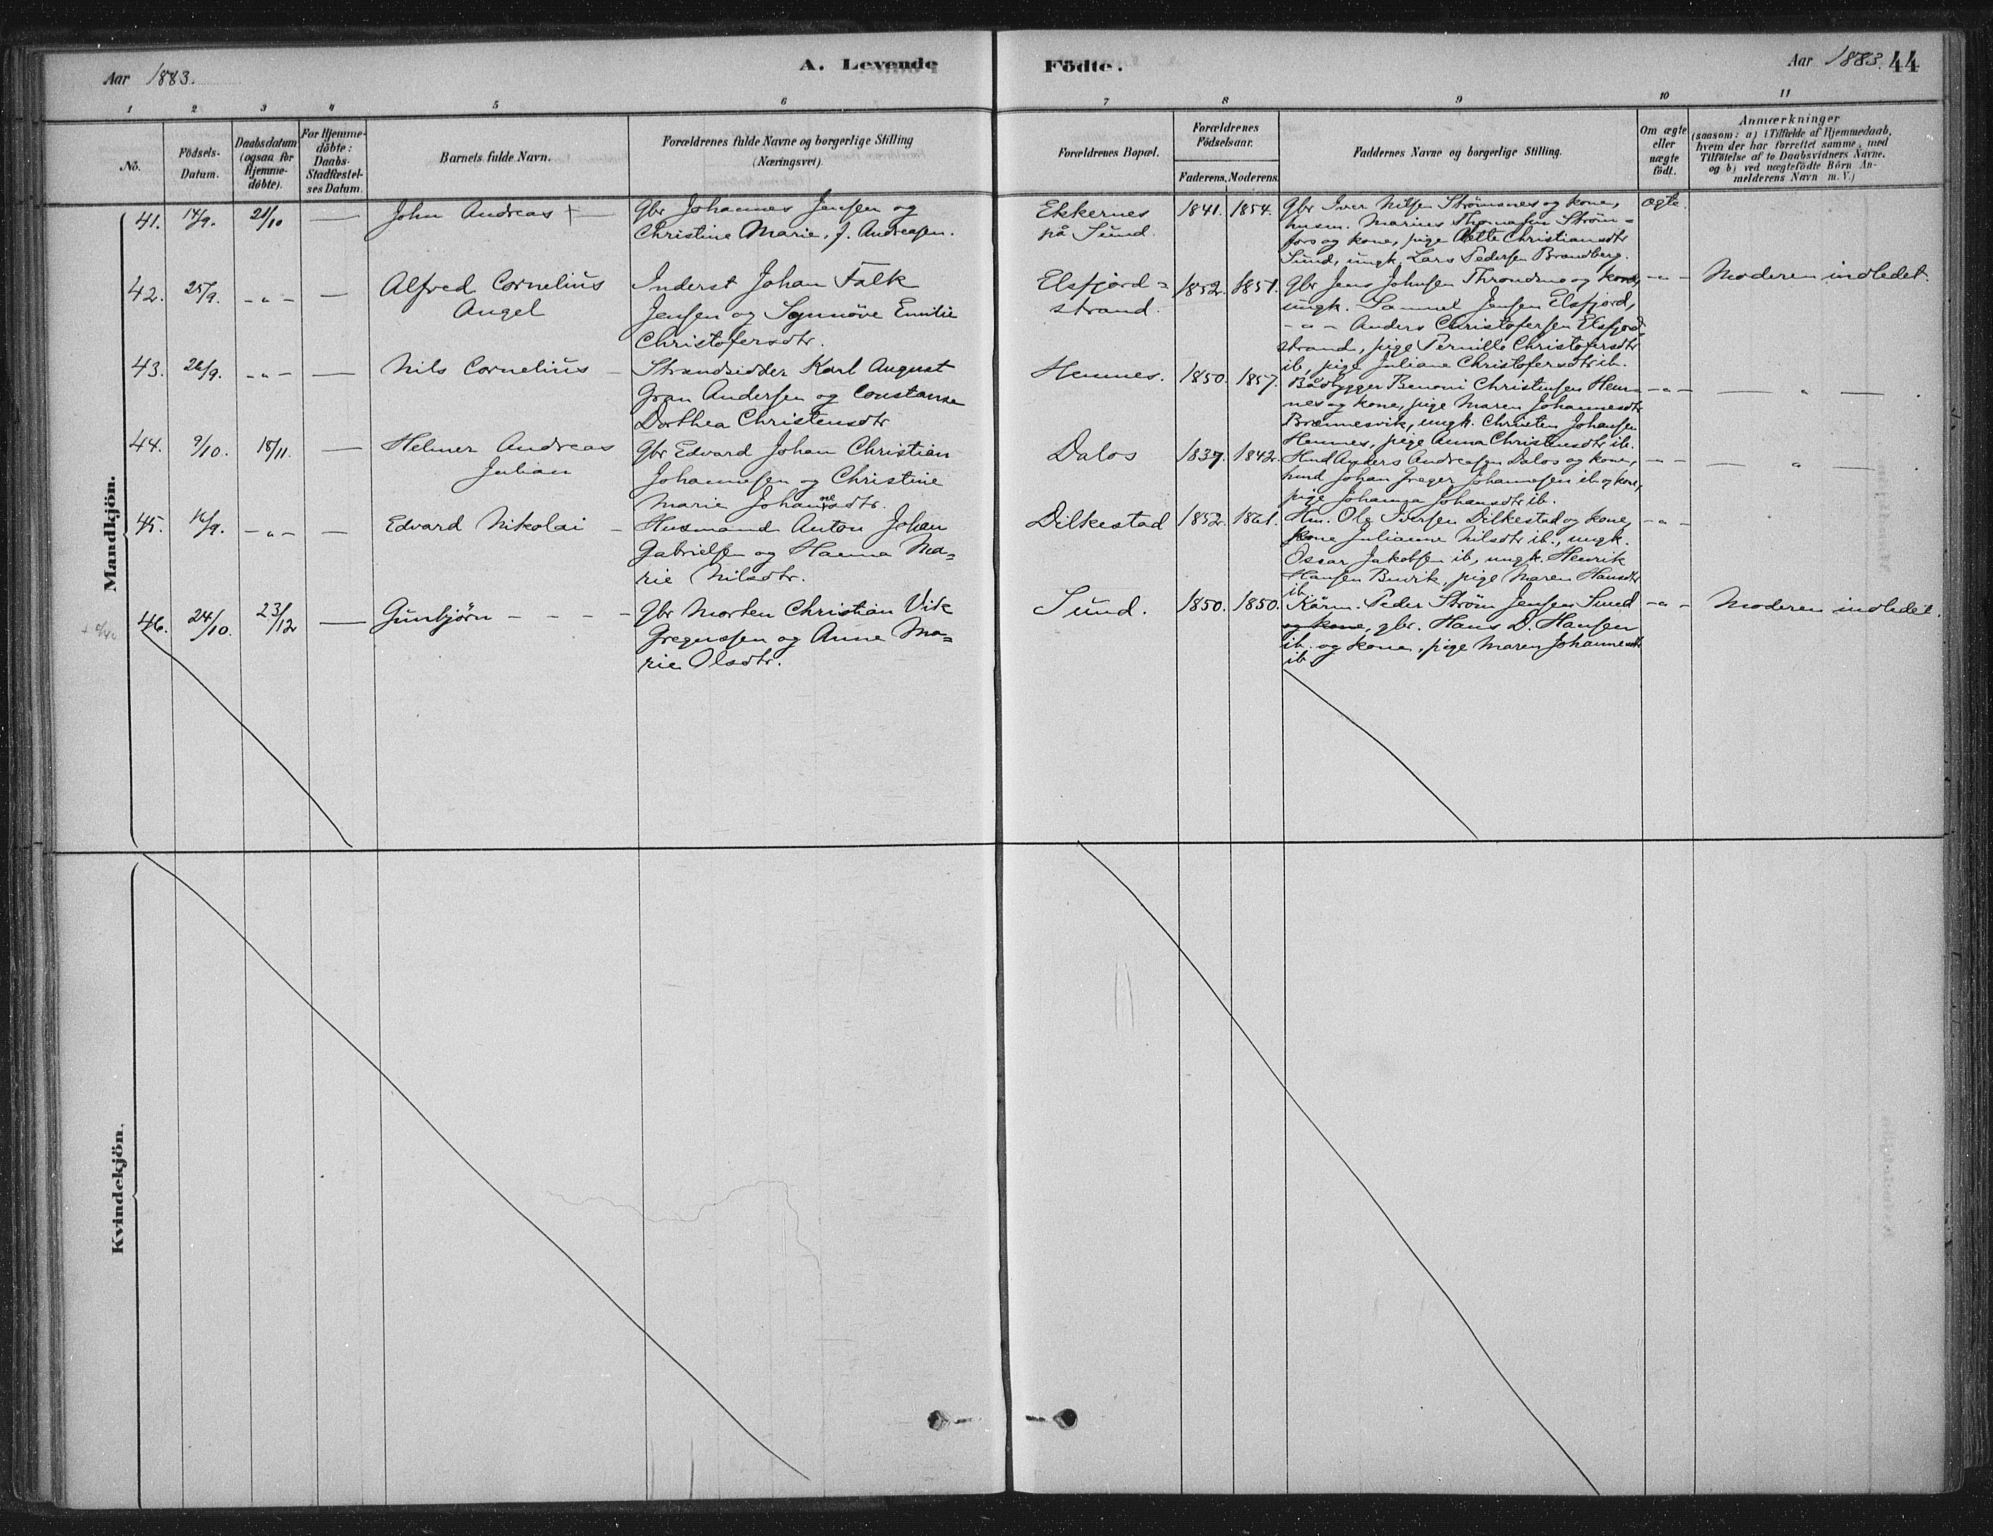 Aar 1883.
A. Levende
Födte.
Aar 1883. 44
1 2 3 4 5 6 7 8 9 10 11
No.
Födsels-
Datum.
Daabsdatum
(ogsaa for
Hjemme-
döbte).
For Hjemme-
döbte:
Daabs-
Stadfæstel-
ses Datum.
Barnets fulde Navn.
Forældrenes fulde Navne og borgerlige Stilling
(Næringsvei).
Forældrenes Bopæl.
Forældrenes
Födselsaar.
Faderens. Moderens.
Faddernes Navne og borgerlige Stilling.
Om ægte
eller
uægte
födt.
Anmærkninger
(saasom: a) i Tilfælde af Hjemmedaab,
hvem der har forrettet samme, med
Tilföielse af to Daabsvidners Navne,
og b) ved uægtefödte Börn An-
melderens Navn m. V.)
Mandkjön.
41. 14/9. 21/10 — John Andreas + —
Gbr Johannes Jensen og
Christine Marie, f. Andreasen.
Ekkernes
på Sund.
1841. 1854.
Gbr Iver Nilsen Strømsnes og kone,
husm. Marius Thomassen Strøm-
fors og kone, pige Christiansdtr
Sund, ungk. Lars Pedersen Brandberg.
Ægte.
42. 25/9. -"- — Alfred Cornelius
Angel
Inderst Johan Falk
Jensen og Synnøve Emilie
Christofersdtr.
Elsfjord-
strand.
1852. 1851.
Gbr Jens Johnsen Throndmo og kone,
ungk. Samuel Jensen Elsfjord,
-"- Anders Christofersen Elsfjord
strand, pige Pernille Christofersdtr
ib, pige Juliane Christofersdtr ib.
-"-
Moderen indledet.
43. 26/9. -"- — Nils Cornelius —
Strandsidder Karl August
Gran Andersen og Constanse
Dorthea Christensdtr
Hemnes.
1850. 1857.
Bådbygger Benoni Christensen Hem-
nes og kone, pige Maren Johannesdtr
Brennesvik, ungk. Christen Johansen
Hemnes, pige Anna Christensdtr ib.
-"-
— " — .
44. 9/10. 18/11. — Helmer Andreas
Julian
Gbr Edvard Johan Christian
Johannesen og Christine
Marie Johannesdtr.
Dalos
1837. 1842.
Husm Anders Andreasen Dalos og kone,
husm Johan Greger Johannesen ib og kone,
pige Johanna Johansdtr ib.
-"-
— " — .
45. 16/9. -"- — Edvard Nikolai —
Husmand Anton Johan
Gabrielsen og Hanna Ma-
rie Nilsdtr.
Dilkestad
1852. 1861.
Hm. Ole Iversen Dilkestad og kone,
kone Julianne Nilsdtr ib., ungk.
Oscar Jakobsen ib, ungk. Henrik
Hansen Buvik, pige Maren Hansdtr
ib.
-"-
46. 24/10. 23/12 — Gunbjørn - - - -
Gbr Morten Christian Vik
Gregussen og Anne Ma-
rie Olsdtr.
Sund.
1850. 1850.
Peder Strøm Jensen Sund
og kone, gbr. Hans D. Hansen
ib. og kone, pige Maren Johannesdtr
ib.
-"-
Moderen indledet.
Kvindekjön.